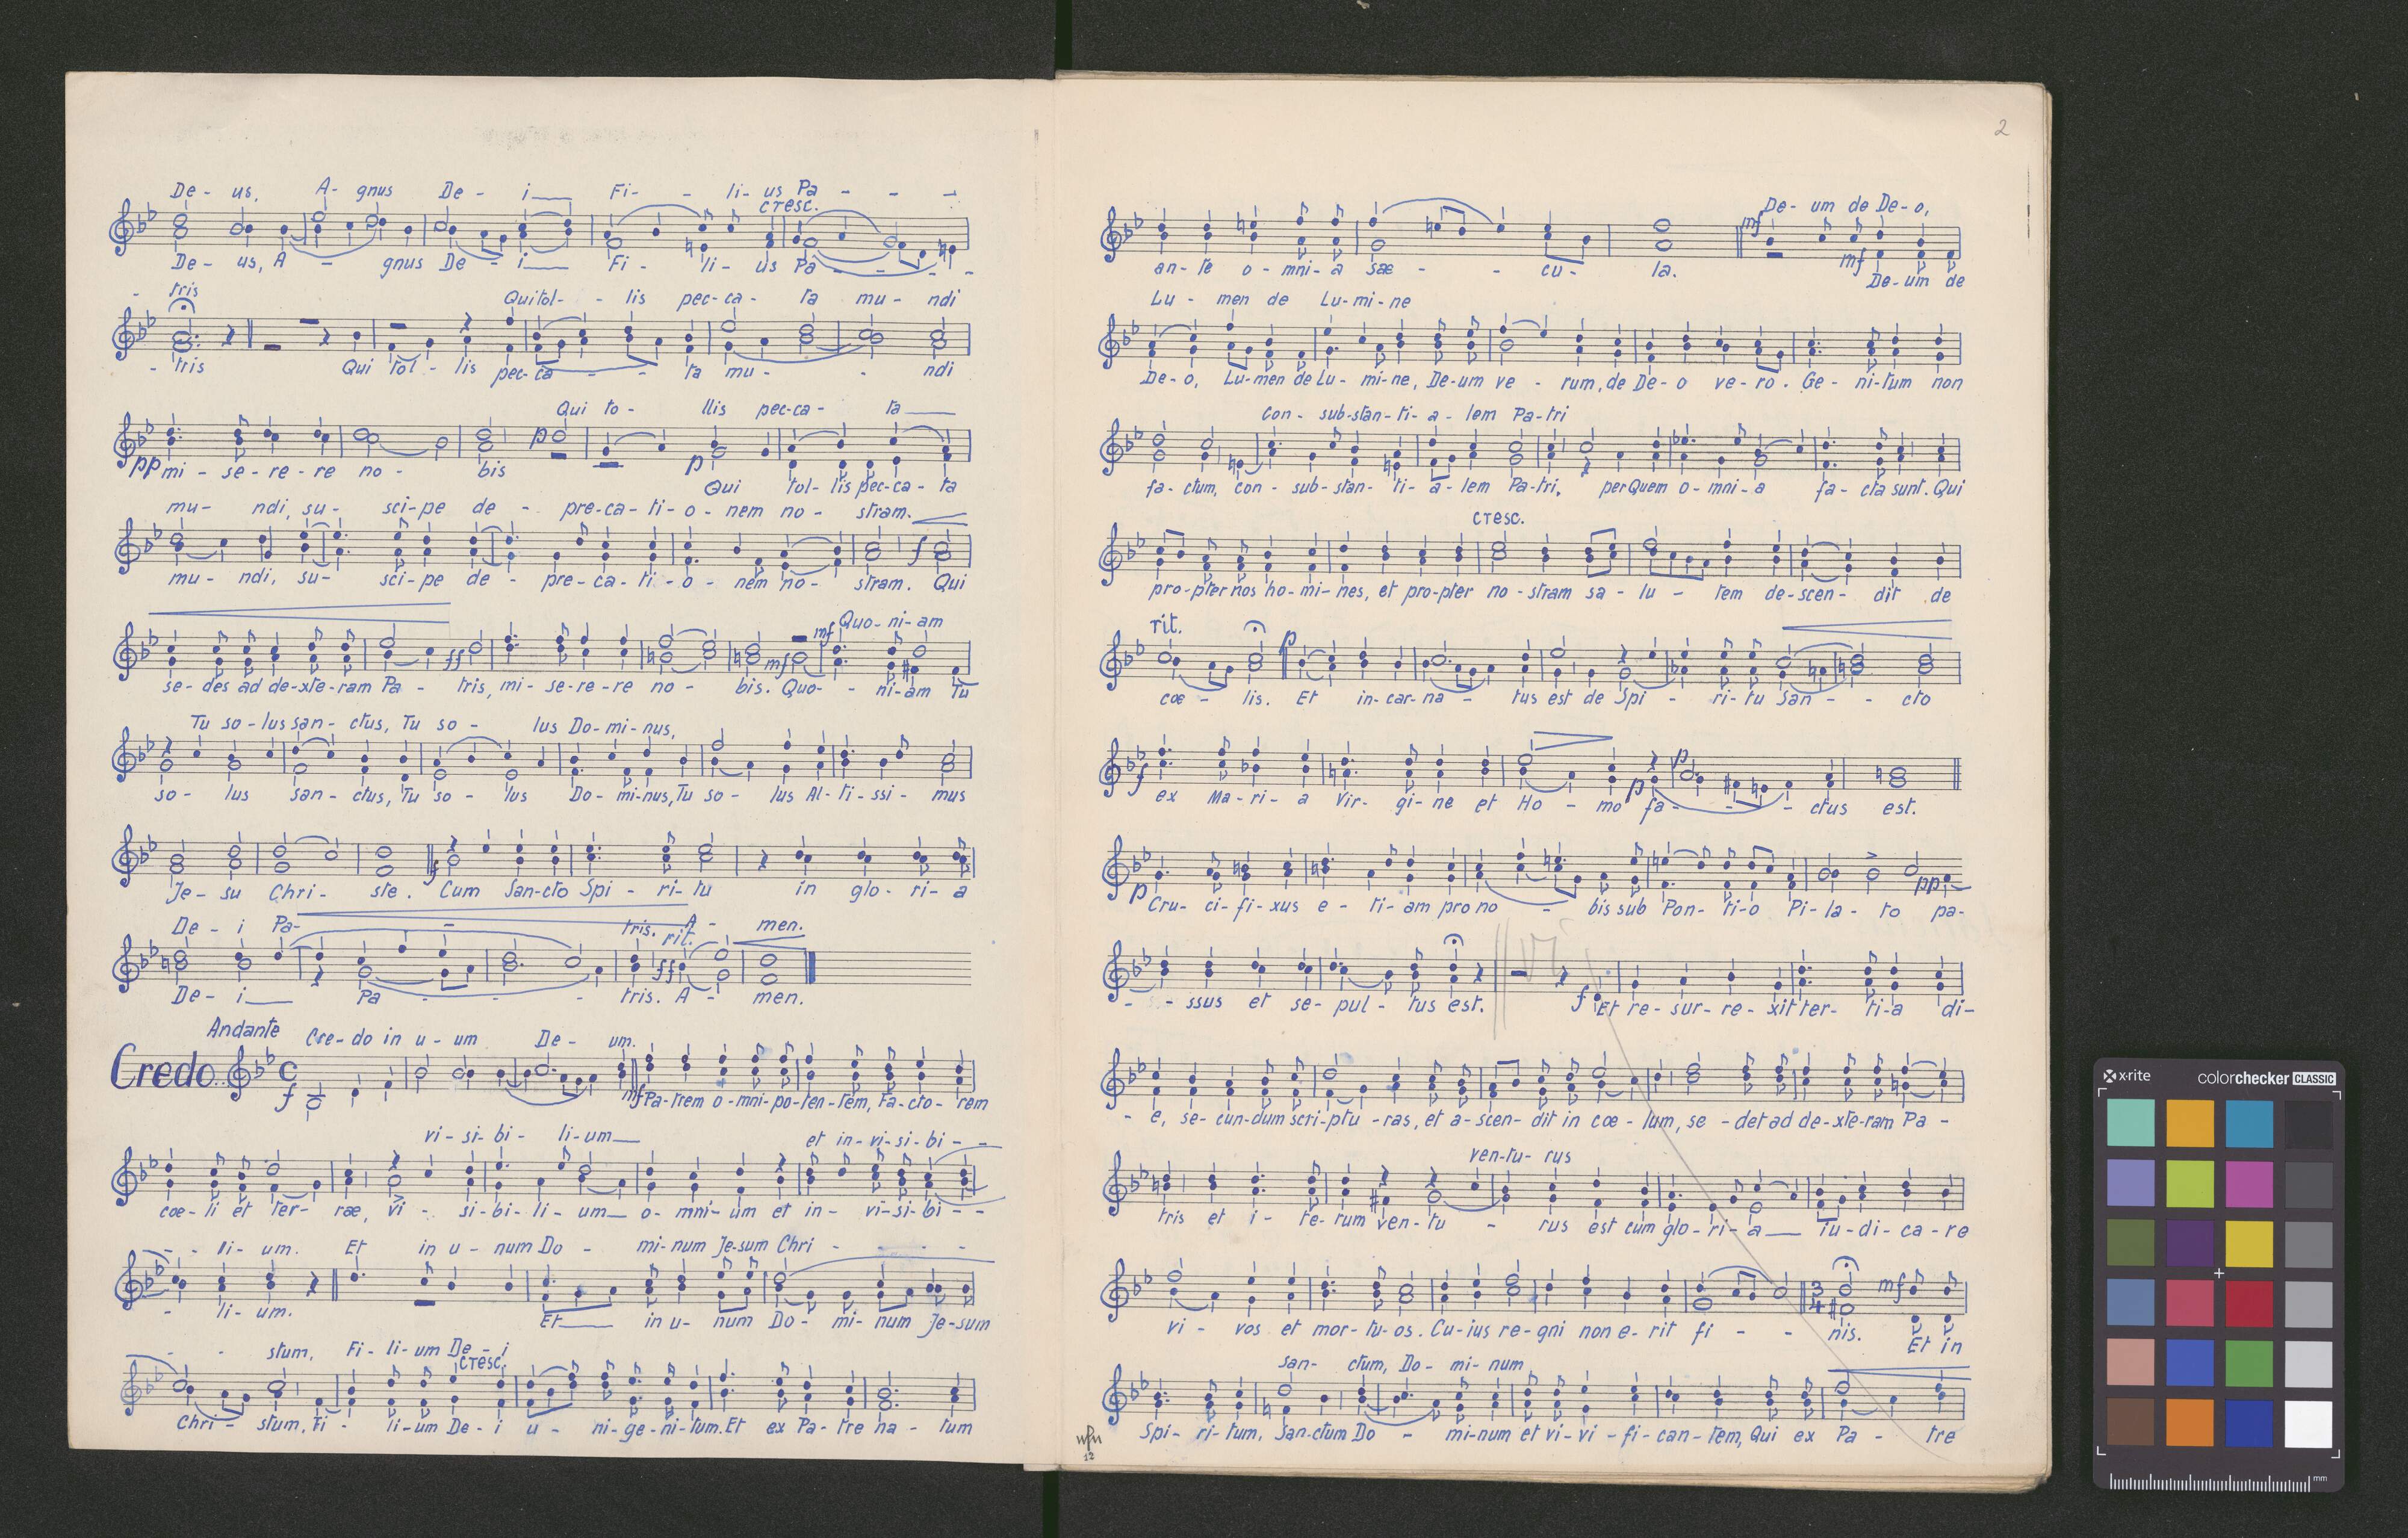 De - us, A - gnus De - i Fi - - li - us Pa - - -
cresc.
De - us, A - gnus De - i Fi - li - us Pa - - - -
- tris Qui tol - - lis pec - ca - ta mu - ndi
- tris Qui tol - lis pec - ca - - ta mu - - ndi
Qui to - llis pec - ca - ta
p
pp mi - se - re - re no - bis p Qui tol - lis pec - ca - ta
mu - ndi, su - sci - pe de - pre - ca - ti - o - nem no - stram.
f
mu - ndi, su - sci - pe de - pre - ca - ti - o - nem no - stram. Qui
mf Quo - ni - am
ff mf
se - des ad de - xte - ram Pa - tris, mi - se - re - re no - bis. Quo - - ni - am Tu
Tu so - lus san - ctus, Tu so - lus Do - mi - nus,
so - lus san - ctus, Tu so - lus Do - mi - nus, Tu so - lus Al - ti - ssi - mus
f
Je - su Chri - ste. Cum San - cto Spi - ri - tu in glo - ri - a
De - i Pa - - tris. A - men.
rit.
ff
De - i Pa - - - tris. A - men.
Andante Cre - do in u - um De - um.
Credo.. C
f mf Pa - trem o - mni - po - ten - tem, Fa - cto - rem
vi - si - bi - li - um et in - vi - si - bi - -
coe - li et ter - rae, vi - si - bi - li - um o - mni - um et in - vi - si - bi - -
- - li - um. Et in u - num Do - mi - num Je - sum Chri - - - -
- li - um. Et in u - num Do - mi - num Je - sum
- - stum, Fi - li - um De - i
cresc.
Chri - stum, Fi - li - um De - i u - ni - ge - ni - tum. Et ex Pa - tre na - tum
2
mf De - um de De - o,
mf
an - te o - mni - a sae - - cu - la. De - um de
Lu - men de Lu - mi - ne
De - o, Lu - men de Lu - mi - ne, De - um ve - rum, de De - o ve - ro. Ge - ni - tum non
con - sub - stan - ti - a - lem Pa - tri
fa - ctum, con - sub - stan - ti - a - lem Pa - tri, per Quem o - mni - a fa - cta sunt. Qui
cresc.
pro - pter nos ho - mi - nes, et pro - pter no - stram sa - lu - tem de - scen - dit de
rit.
p
coe - lis. Et in - car - na - tus est de Spi - ri - tu San - - cto
f p p
ex Ma - ri - a Vir - gi - ne et Ho - mo fa - - - ctus est.
p pp
Cru - ci - fi - xus e - ti - am pro no - bis sub Pon - ti - o Pi - la - to pa -
- - ssus et se - pul - tus est. f Et re - sur - re - xit ter - ti - a di -
- e, se - cun - dum scri - ptu - ras, et a - scen - dit in coe - lum, se - det ad de - xte - ram Pa -
ven - tu - rus
tris et i - te - rum ven - tu - rus est cum glo - ri - a iu - di - ca - re
3
4
mf
vi - vos et mor - tu - os. Cu - ius re - gni non e - rit fi - - nis. Et in
san - ctum, Do - mi - num
Spi - ri - tum, San - ctum Do - mi - num et vi - vi - fi - can - tem, Qui ex Pa - tre
12
x-rite colorchecker CLASSIC
mm